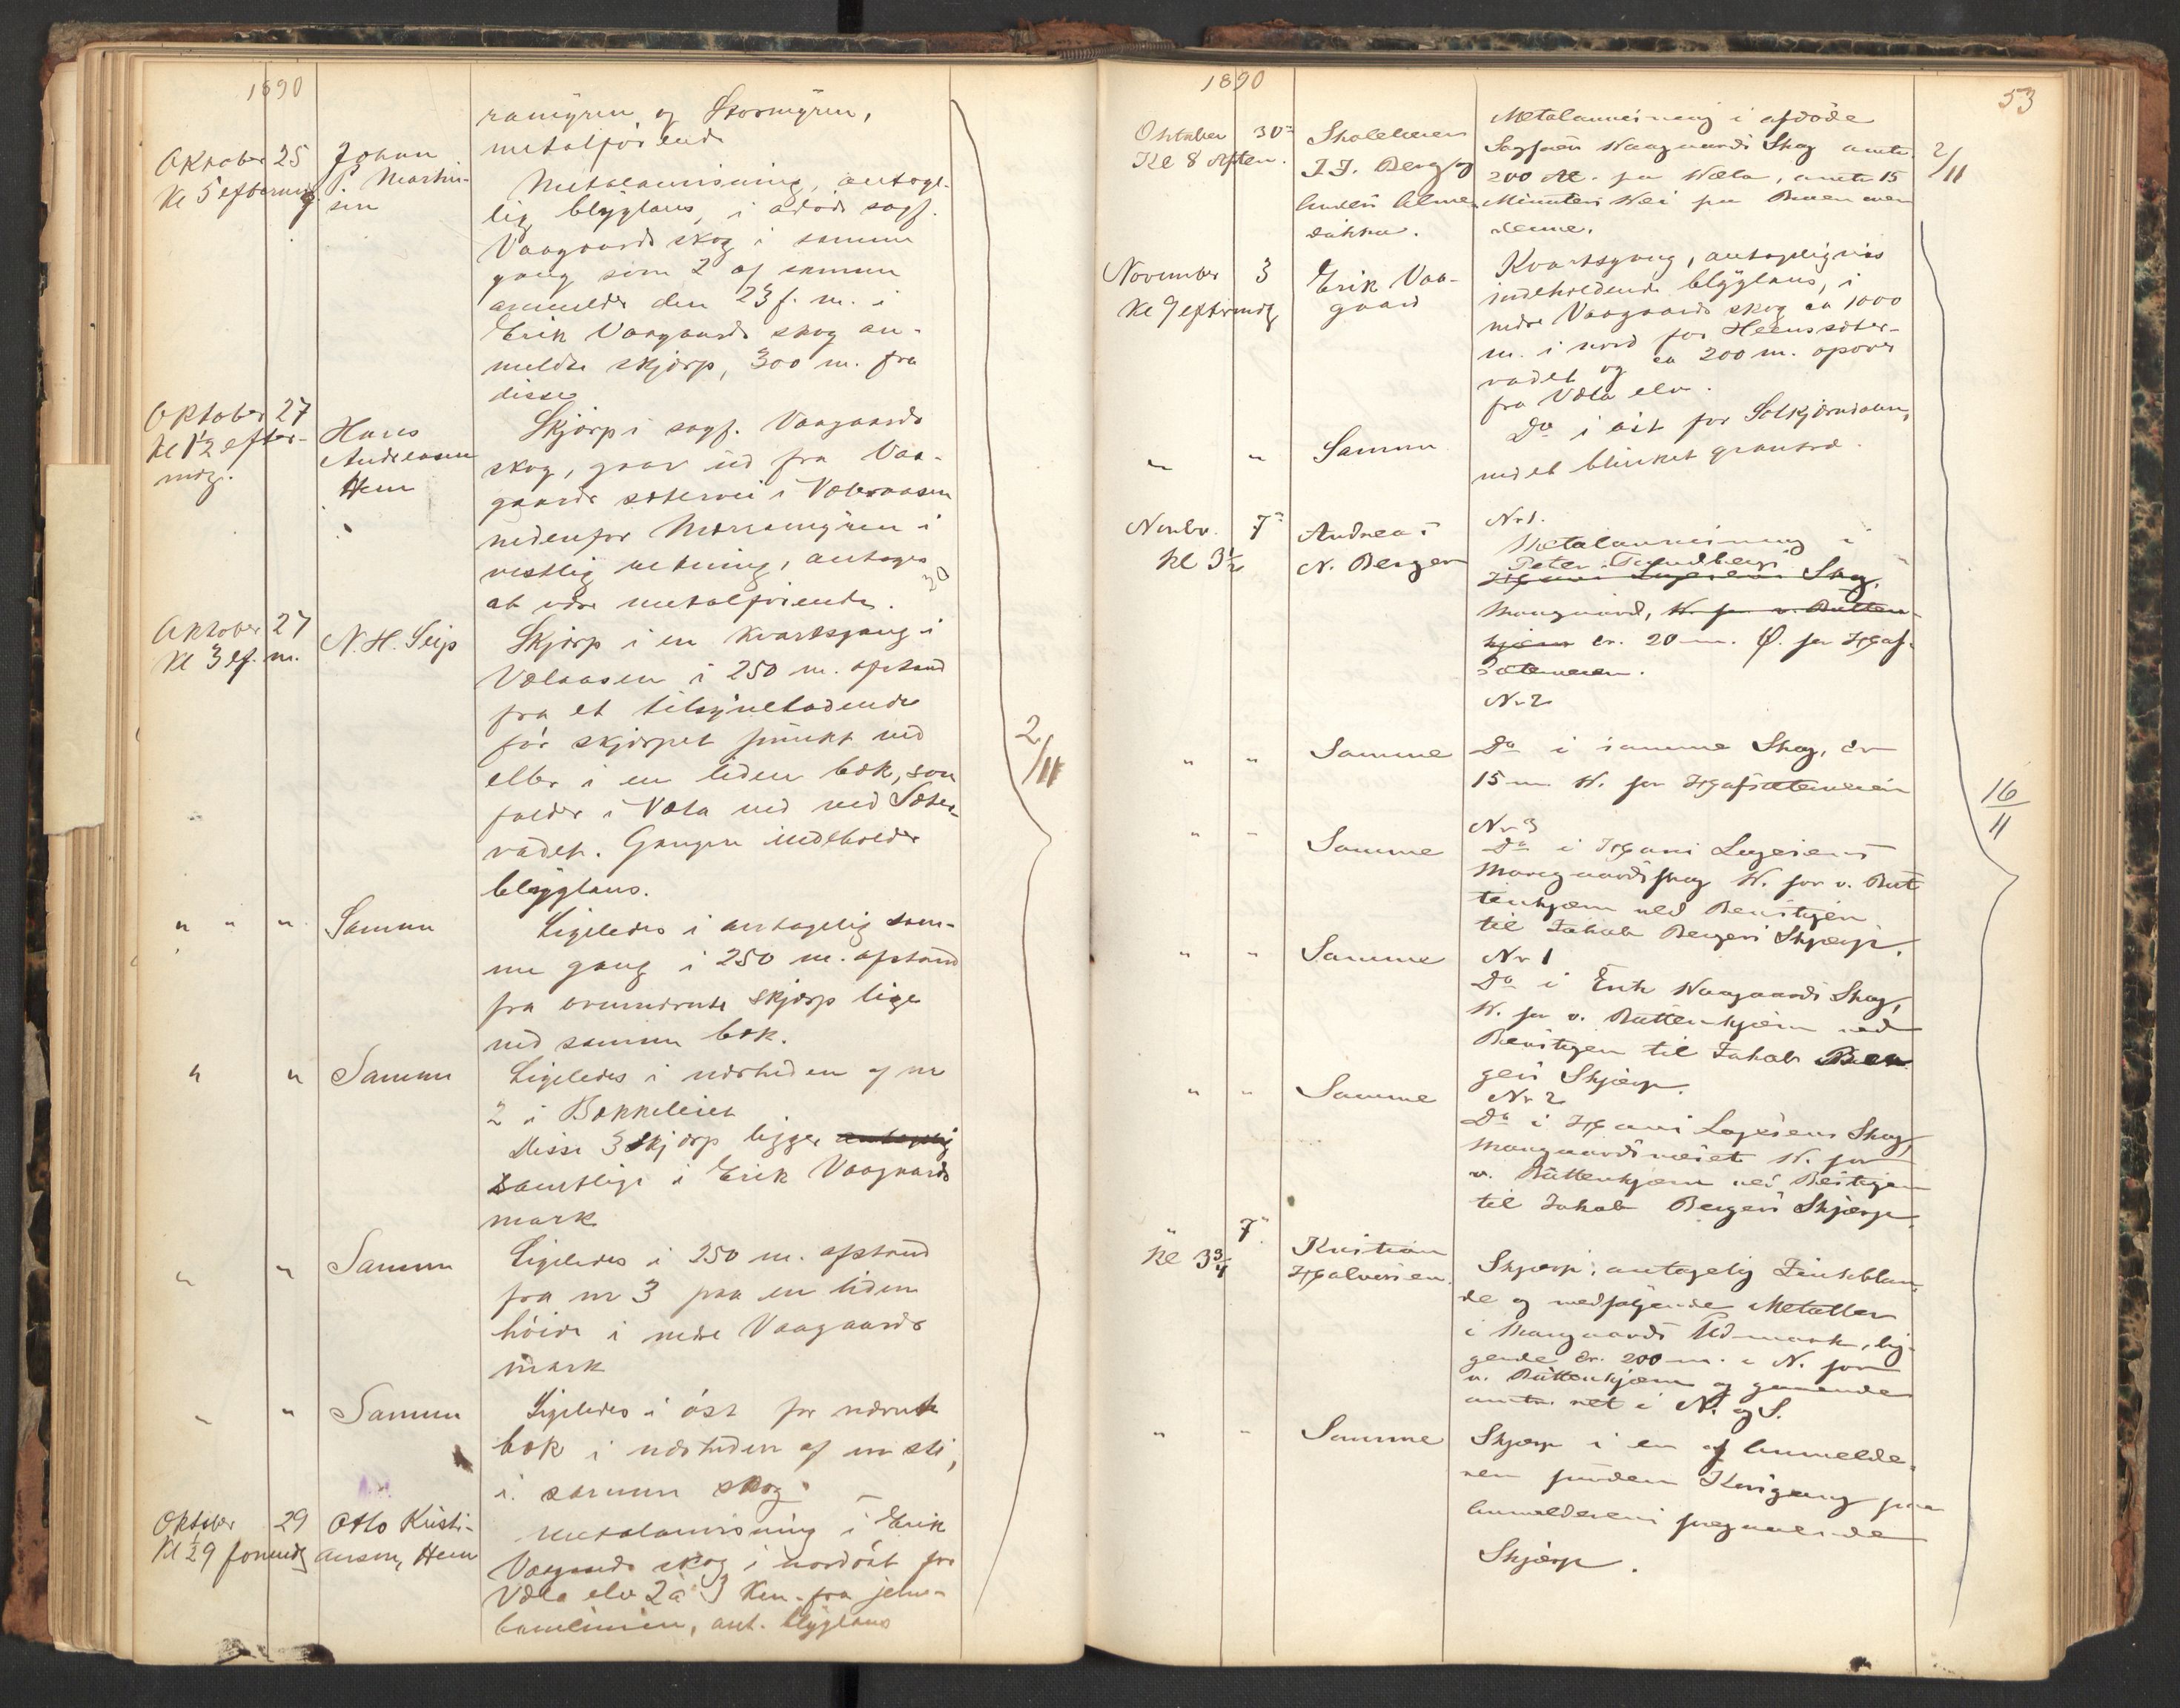 1890
ramyren og Stormyren,
metalförende
Oktober 25
Kl 5 eftermdg
Johan
P. Martin-
sen
Metalanvisning, antage-
lig blyglans, i afdöde sagf.
Vaagaards skog i samme
gang som 2 af samme
anmeldte den 23 f. m. i
Erik Vaagaards skog an-
meldte skjærp, 300 m. fra
disse
Oktober 27
Kl 12 efter-
mdg.
Hans
Andreasen
Hem
Skjærp i sagf. Vaagaards
skog, gaar ud fra Vaa-
gaards sætervei i Vælaaasen
nedenfor Morramyren i
vestlig retning, antages
at være metalförende.
30
Oktober 27
Kl 3 ef. m.
N. H. Seip
Skjærp i en kvartsgang i
Vælaasen i 250 m. afstand
fra et tilsyneladende
för skjærpet punkt ved
eller i en liden bæk, som
falder i Væla ned ved Sæter-
vadet. Gangen indeholder
blyglans.
2/11
" " " Samme
Ligeledes i antagelig sam-
me gang i 250 m. afstand
fra ovennævnte skjærp lige
ved samme bæk.
" " Samme
Ligeledes i nærheden af nr
2 i Bækkeleiet
Disse 3 skjærp ligger antagelig
samtlige i Erik Vaagaards
mark
" " Samme
Ligeledes i 250 m. afstand
fra nr 3 paa en liden
höide i nedre Vaagaards
mark
" " Samme
Ligeledes i öst for nævnte
bæk i nærheden af en sti,
i samme skog.
Oktober 29
Kl ½9 formdg
Otto Kristi-
ansen, Hem
Metalanvisning i Erik
Vaagaards skog i nordöst for
Væla elv 2 à 3 Km. fra jern-
banelinien, ant. blyglans
1890
53
Oktober 30te
Kl 8 Aften.
Skolelærer
J. J. Berg og
Anders
Metalanvisning i afdöde
Sagförer Waagaards Skog omtr.
200 M. fra Wæla, omtr. 15
Minuters Vei fra Broen over
denne.
2/11
November 3
Kl 9 eftermdg
Erik Vaa-
gaard
Kvartsgang, antageligvis
indeholdende blyglans, i
nedre Vaagaards skog ca 1000
m. i nord for Heens sæter-
vadet og ca 200 m. opover
fra Væla elv.
" " Samme
Do i öst for Solkjærndalen,
ved et blinket grantræ.
Novbr. 7de
Kl 3½
Andreas
N. Berger
Nr 1.
Metalanvisning i
Peter Sundbergs
Hans Lagesens Skog,
Moengaard, N. for v. Butten-
kjærn ca. 20 m. Ø. for Hgaf-
sæterveien.
" " Samme
Nr 2
Do i samme Skog, ca
15 m N. for Hgafsæterveien
16/11
" " Samme
Nr 3
Do i Hans Lagesens
Moengaardsskog N. for v. But
tenkjærn ved Benstigen
til Jakob Bergers Skjærp.
" " Samme
Nr 1
Do i Erik Waagaards Skog,
N. for v. Buttenkjærn ved
Benstigen til Jakob Ber
gers Skjærp.
" " Samme
Nr 2
Do i Hans Lagesens Skog,
N. for
v. Buttenkjærn ved Bestigen
til Jakob Bergers Skjærp.
" 7de
Kl 3¾
Kristian
Halvorsen.
Skjærp, antagelig Zinkblen-
de og medfølgende Metaller
i Moengaards Udmark, lig-
gende ca. 200 m. i N. for
v. Buttenkjærn og gaaende
omtr. ret i N. og S.
" " Samme
Skjærp i en af Anmelde-
ren funden Kisgang paa
Anmelderens foregaaende
Skjærp.